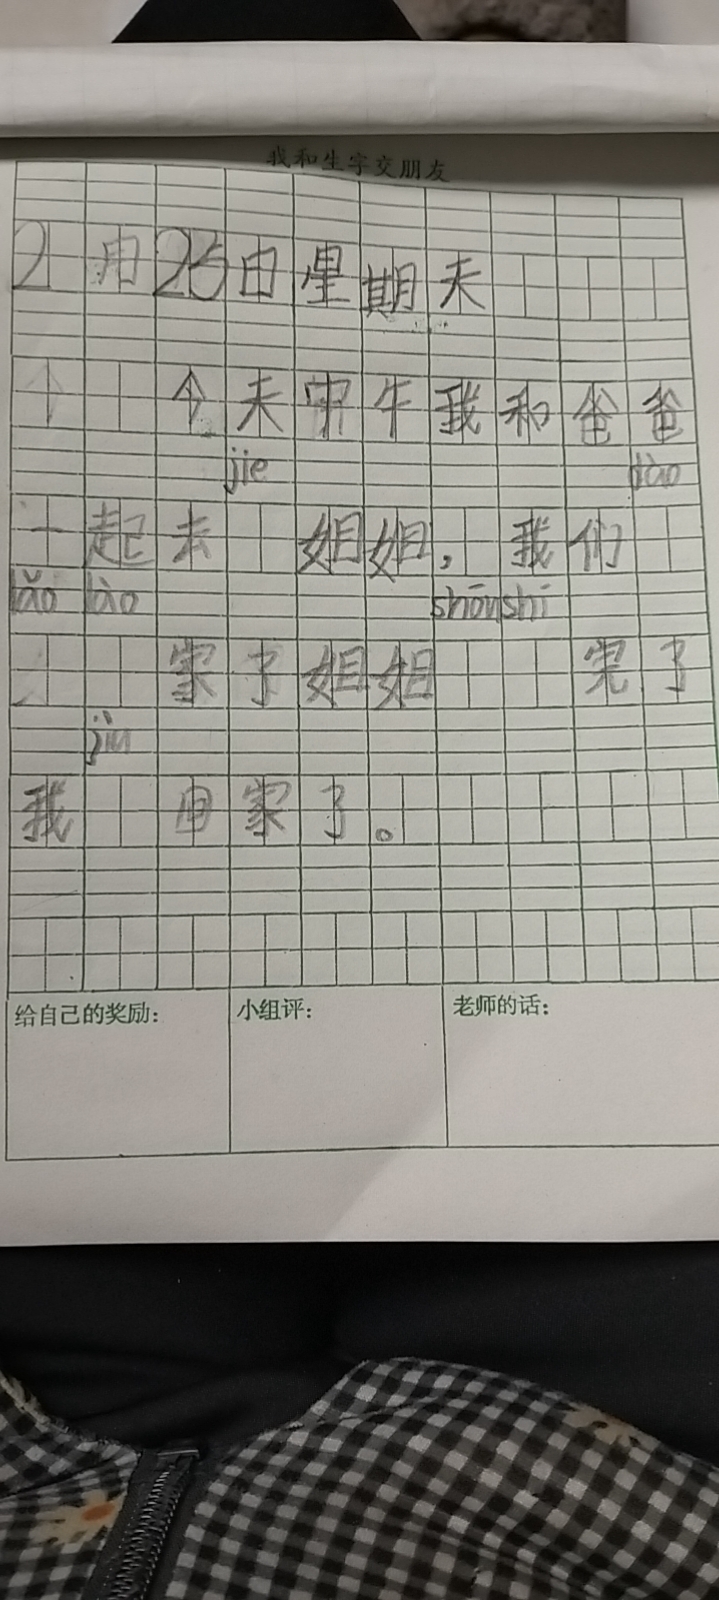 我和生字交朋友
2月25日星期天
今天中午我和爸爸
jie
一起去 姐姐，我们
lǎo shōu shi
家了姐姐 完了
jiu
我 回家了。
给自己的奖励： 小组评： 老师的话：